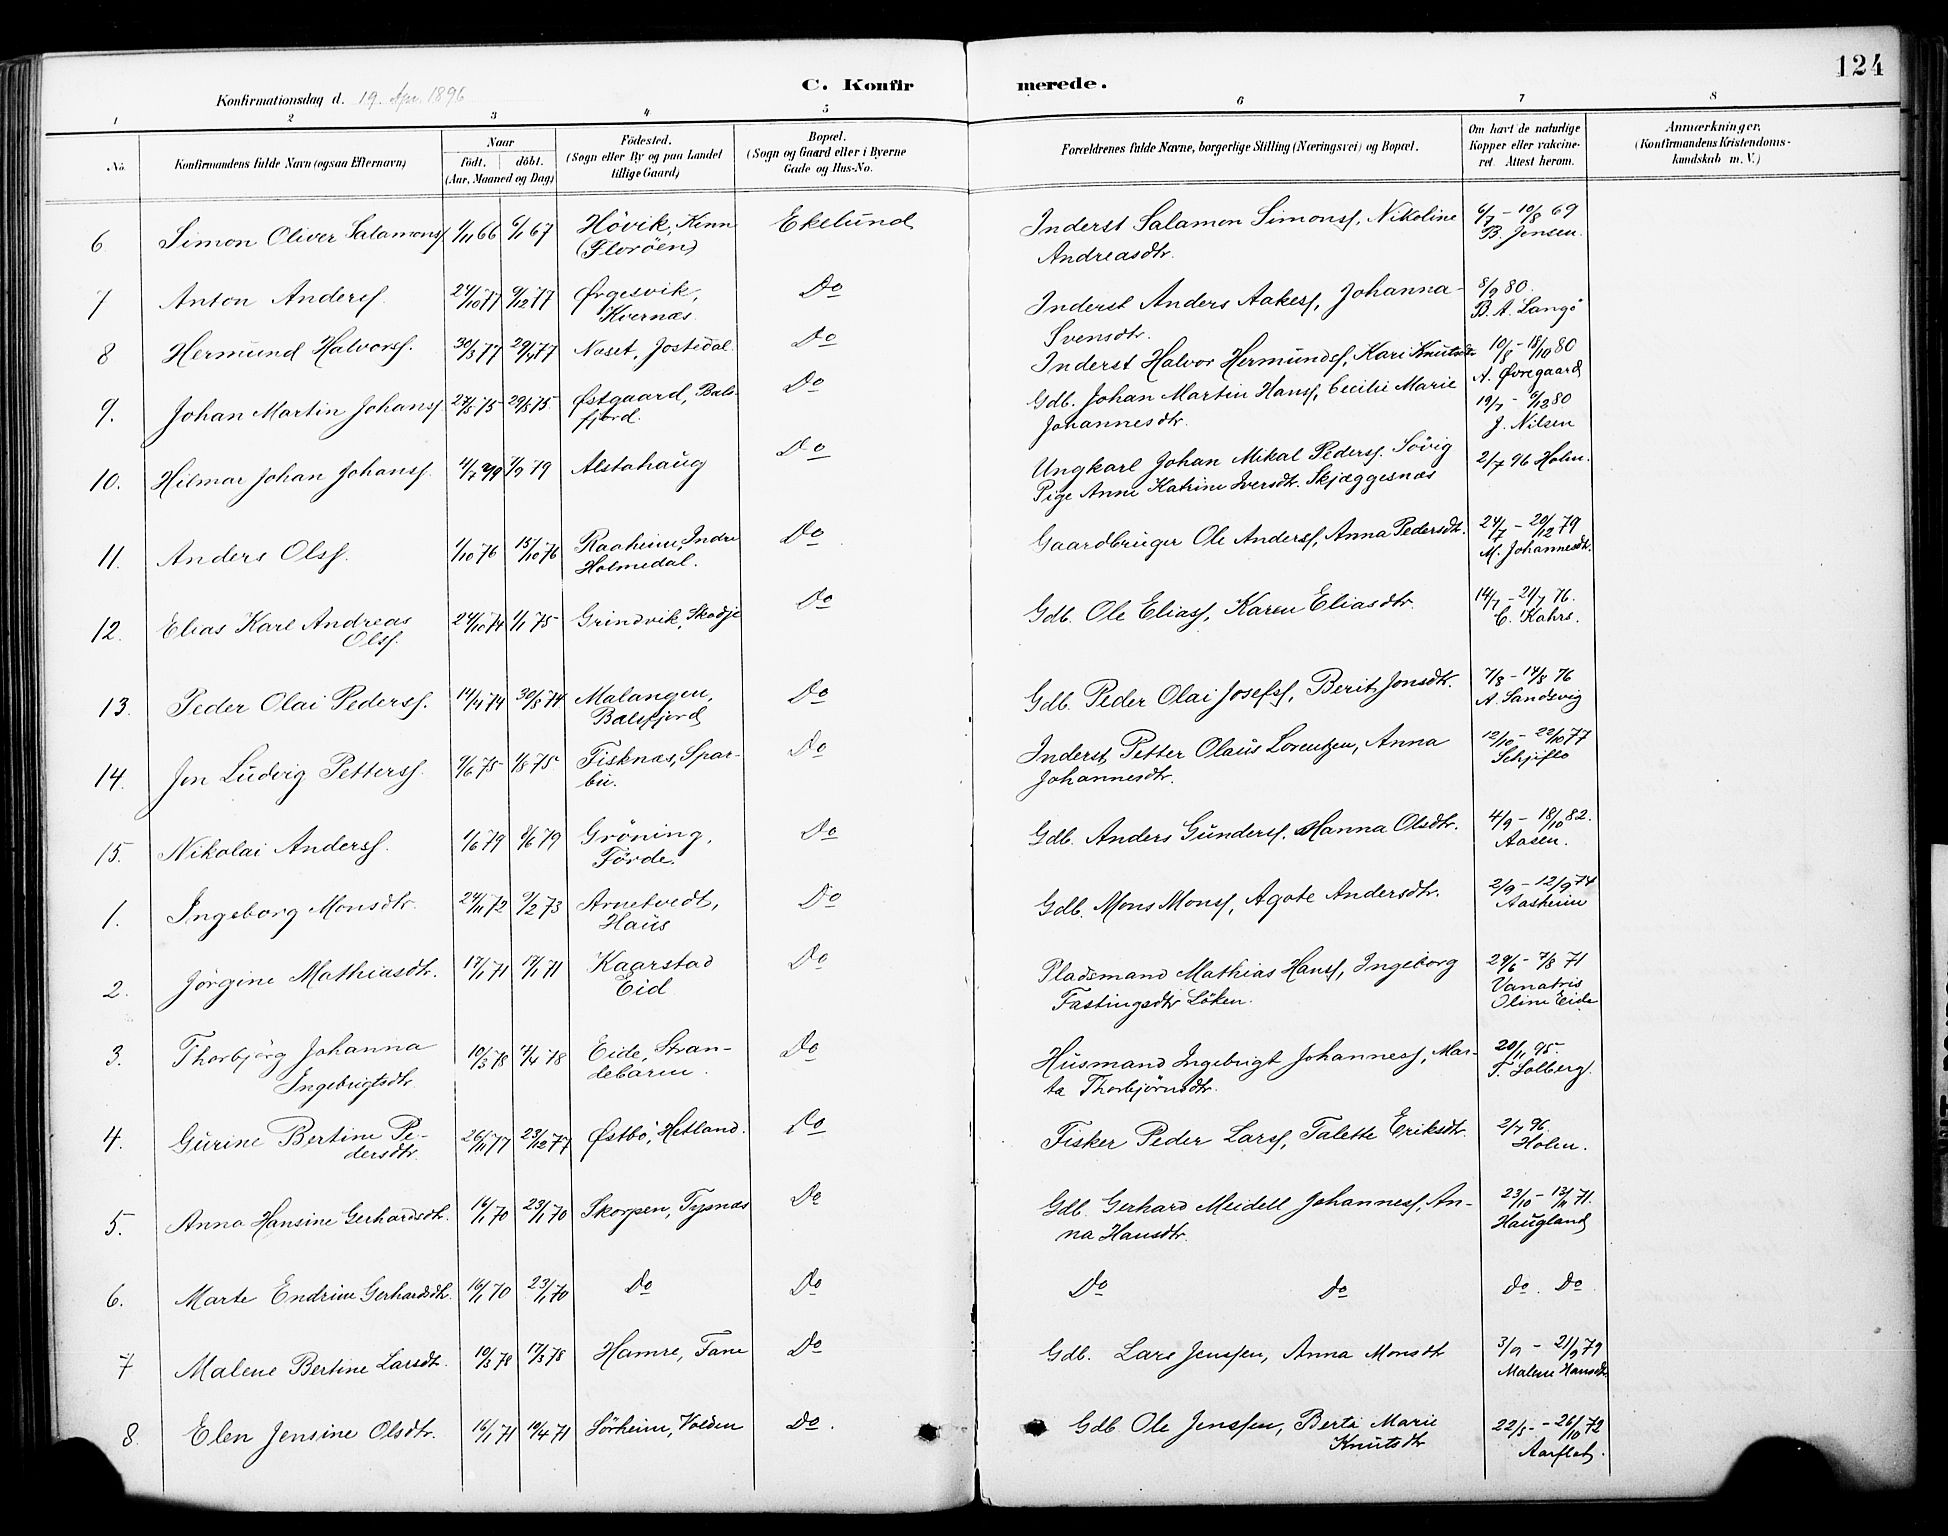 124
C. Konfirmerede.
Konfirmationsdag d. 19. Apr. 1896
1 2 3 4 5 6 7 8
No. Konfirmandens fulde Navn (ogsaa Efternavn)
Naar
födt. döbt.
(Aar, Maaned og Dag)
Födested.
(Sogn eller By og paa Landet
tillige Gaard)
Bopæl.
(Sogn og Gaard eller i Byerne
Gade og Hus-No.
Forældrenes fulde Navne, borgerlige Stilling (Næringsvei) og Bopæl.
Om havt de naturlige
Kopper eller vakcine-
ret. Attest herom.
Anmærkninger.
(Konfirmandens Kristendoms-
kundskab m. V.)
6 Simon Oliver Salamons. 1/11 66 6/1 67 Hövik, Kinn Ekelund Inderst Salamon Simons, Nikoline 6/7 - 10/8 69
(Floröen) Andreasdtr. B. Jensen.
7 Anton Anders. 24/10 77 9/12 77 Ørgesvik, Do Inderst Anders Aakes, Johanna 8/9 80.
Kvernæs. Svensdtr. B. A. Langö
8 Hermund Halvors. 30/3 77 29/4 77 Naset, Jostedal. Do Inderst Halvor Hermunds, Kari Knutsdtr 10/8 - 18/10 80
A. Øvregaard
9. Johan Martin Johans. 27/5 75 29/8 75. Østgaard, Bals- Do Gdb. Johan Martin Hans, Cecilie Marie 19/7 - 6/12 80
fjord. Johannesdtr. J. Nilsen
10. Hilmar Johan Johans. 4/7 79 7/9 79 Alstahaug Do Ungkarl Johan Mikal Peders. Sövig 2/7 96 Holm.
Pige Anne Katrine Iversdtr. Skjæggesnæs
11. Anders Ols. 1/10 76 15/10 76 Raaheim, Indre Do Gaardbruger Ole Anders, Anna Pedersdtr. 24/7 - 20/12 79
Holmedal. M. Johannesdtr.
12. Elias Karl Andreas 24/10 74 1/1 75 Grindvik, Skodje Do Gdb. Ole Elias, Karen Eliasdtr. 14/7 - 21/7 76.
Ols. C. Kahrs.
13. Peder Olai Peders. 14/4 74 30/8 74 Malangen, Do Gdb. Peder Olai Josefs, Berit Jonsdtr. 7/8 - 14/8 76
Balsfjord A. Sandsvig
14. Jon Ludvig Petters. 9/6 75 1/8 75 Fisknæs, Spar- Do Inderst Petter Olaus Lorentzen, Anna 12/10 - 22/10 77
bu. Johannesdtr. Schjeflo
15. Nikolai Anders. 1/6 79 8/6 79 Gröning, Do Gdb. Anders Gunders. Hanna Olsdtr. 4/9 - 18/10 82.
Förde. Aasen.
1. Ingeborg Monsdtr. 24/11 72 9/2 73 Arnetvedt, Do Gdb. Mons Mons, Agate Andersdtr. 2/9 - 12/9 74
Haus Aasheim
2. Jörgine Mathiasdtr. 17/1 71 17/1 71 Kaarstad Do Pladsmand Mathias Hans, Ingeborg 29/6 - 7/8 71
Eid Fastingsdtr Löken. Vanatris
Oline Eide
3. Thorbjörg Johanna 10/3 78 7/4 78 Eide, Stran- Do Husmand Ingebrigt Johannes, Mar- 20/11 95.
Ingebrigtsdtr debarm. ta Thorbjörnsdtr. T. Solberg.
4. Gurine Bertine Pe- 26/11 77 23/12 77 Østbö, Hetland. Do Fisker Peder Lars, Talette Eriksdtr. 2/7 96.
dersdtr. Holm.
5. Anna Hansine Gerhardsdtr. 16/1 70 23/1 70 Skorpen, Tysnæs Do Gdb. Gerhard Meidell Johannes, An- 23/10 - 13/11 71.
na Hansdtr. Haugland
6. Marte Endrine Gerhardsdtr. 16/1 70 23/1 70 Do Do Do do do. Do.
7 Malene Bertine Larsdtr. 10/3 78 17/3 78 Hamre, Fane Do Gdb. Lars Jenssen, Anna Monsdtr 3/9 - 21/9 79
Malene Hansdtr
8. Elen Jensine Olsdtr. 16/1 71 10/4 71 Sörheim, Volden Do. Gdb. Ole Jenssen, Berte Marie 22/5 - 26/10 72
Knutsdtr Aarflot.